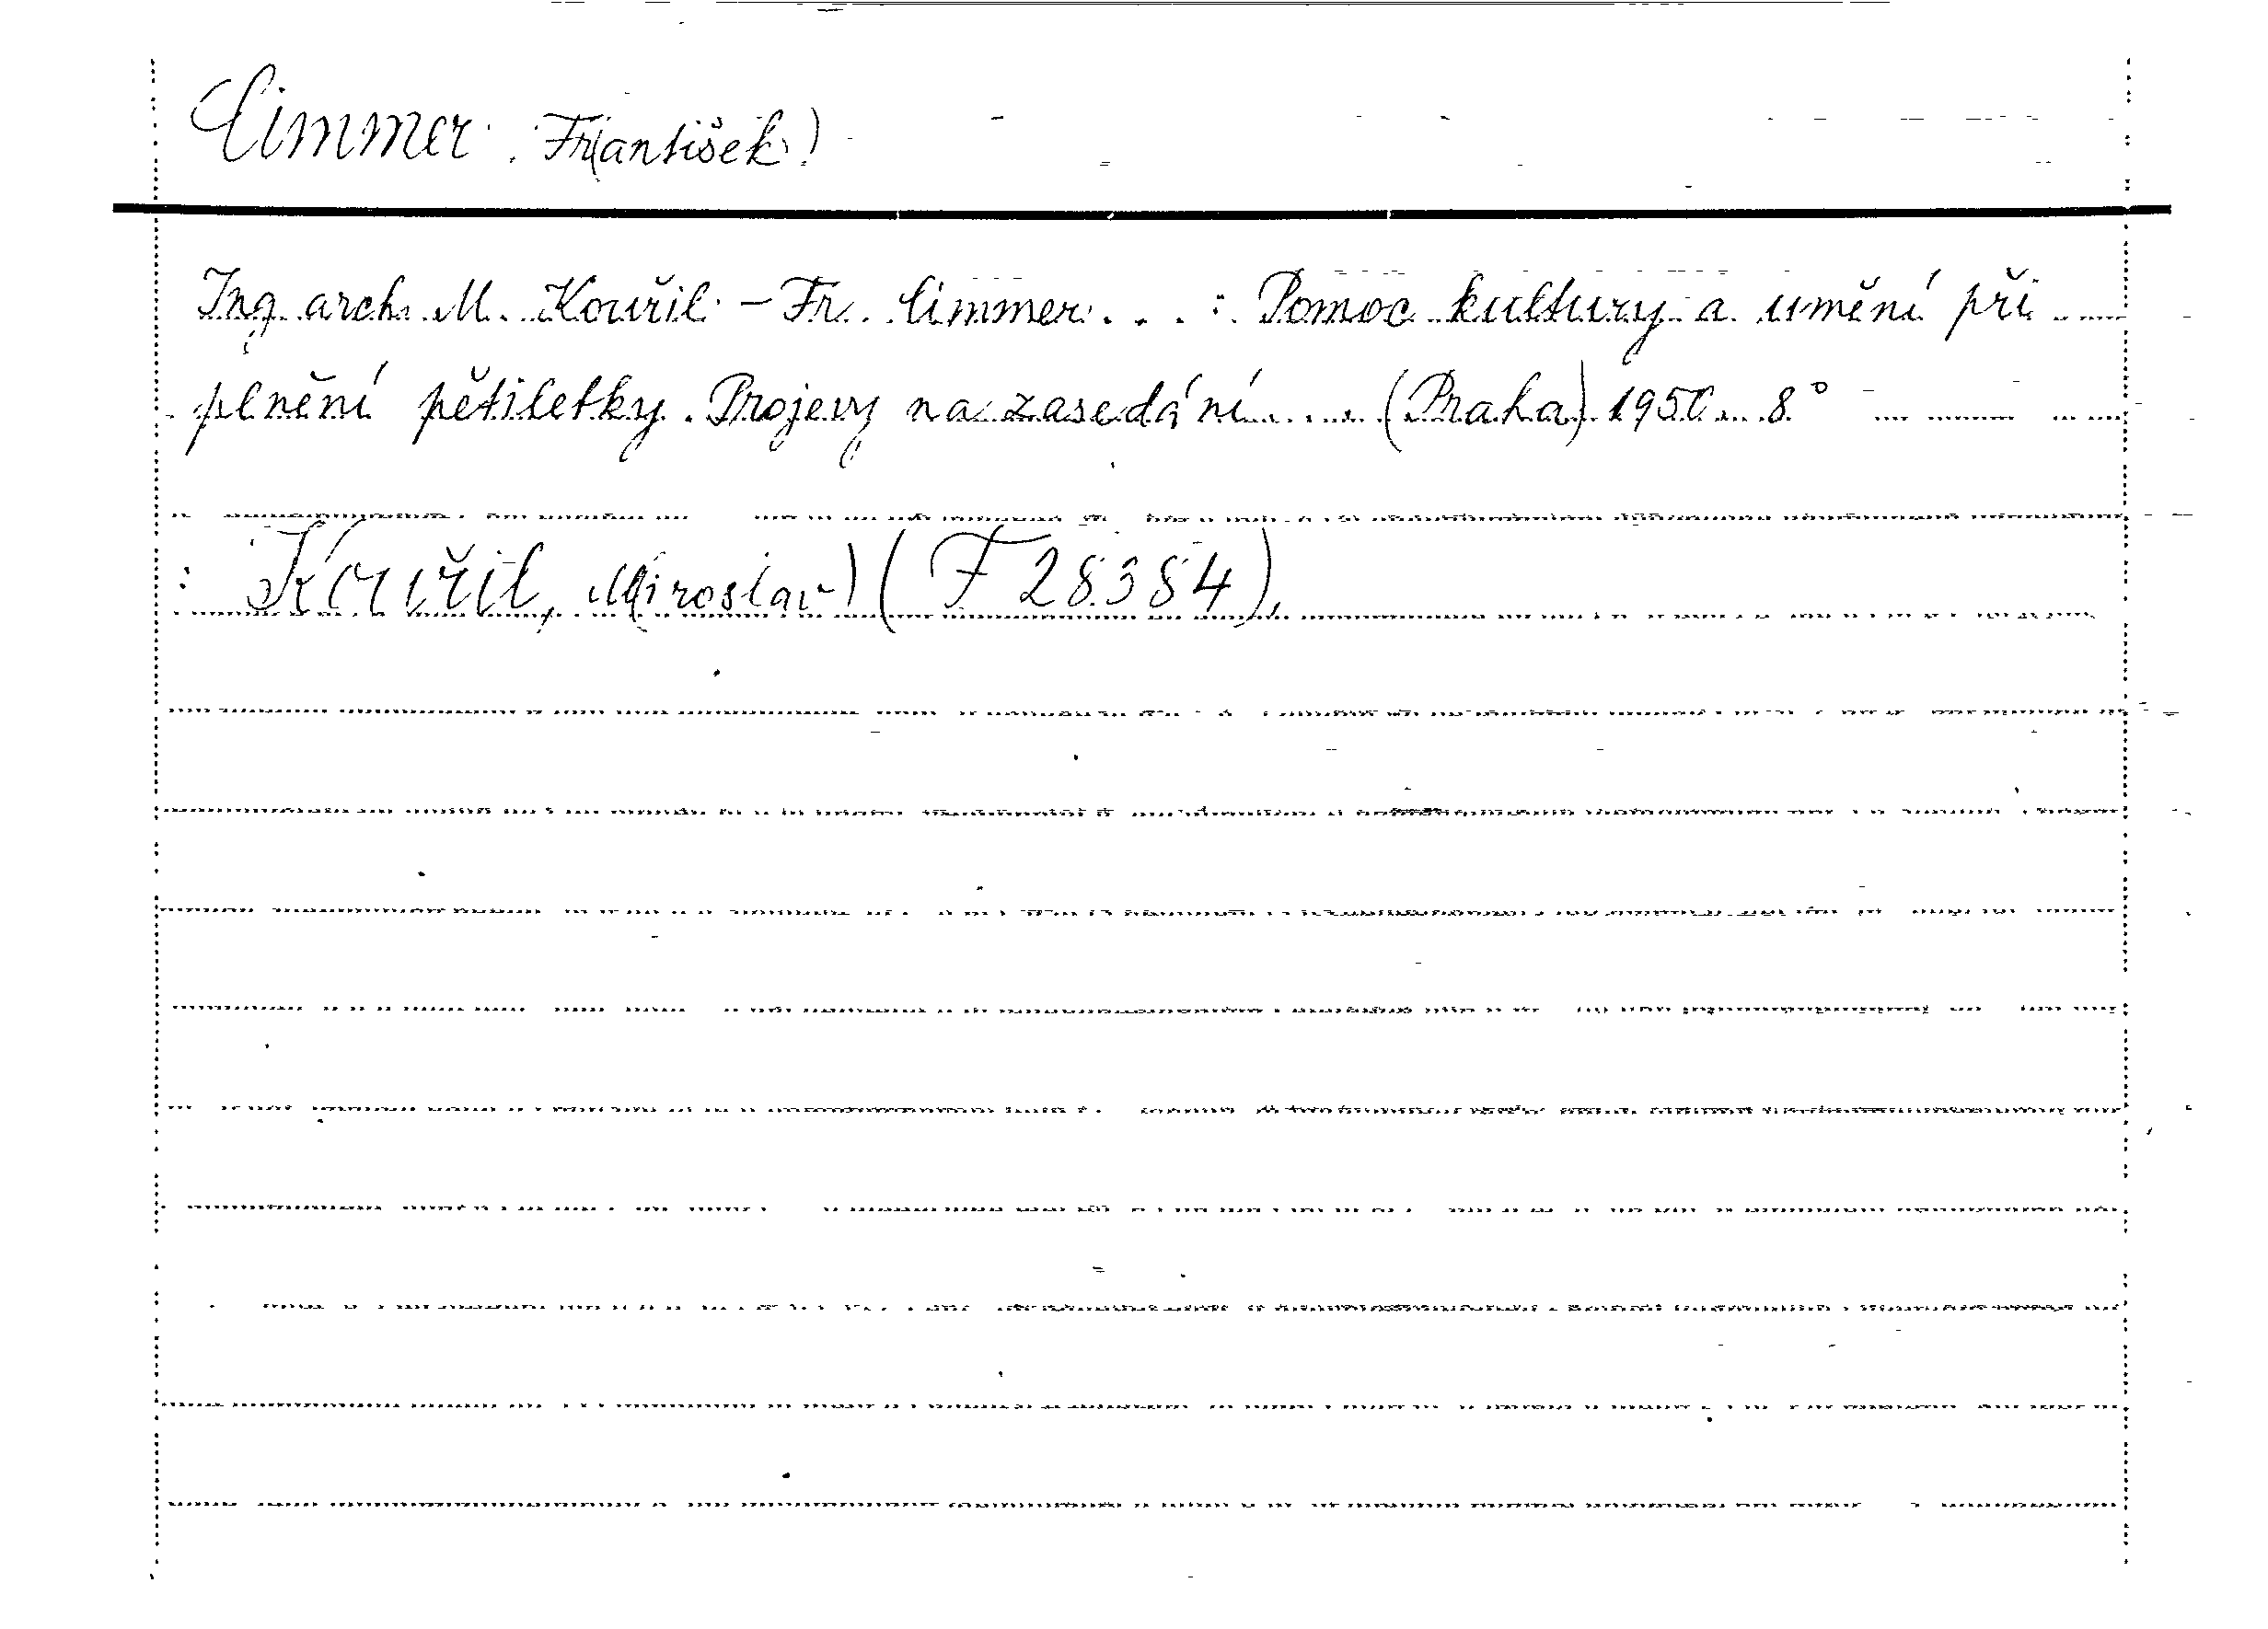 Cimmer, Fr(antišek)
Ing. arch. M. Kouřil - Fr. Cimmer . . . : Pomoc kultury a umění při
plnění pětiletky. Projevy na zasedání.... (Praha) 1950. 8°
: Kouřil, M(iroslav) (F 28384),